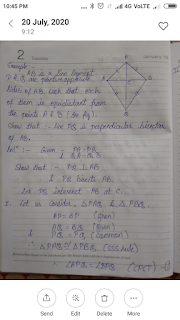 10:45 PM
4G VoLTE
20 July, 2020
9:12
2
Tuesday
January '18
Example:- AB is a line Segment
P & Q are points on opposite
Sides of AB Such that each
of them is equidistant from
the points A & B (See fig).
Show that :- line PQ is perpendicular bisector
of AB.
Sol :- Given :- PA = PB
QA = QB
Show that :- PQ ⊥ AB
& PQ bisects AB.
Let PQ intersect AB at C.
I. Let us Consider, △PAQ & △PBQ,
AP = BP (Given)
AQ = BQ (Given)
PQ = PQ (Common)
∴ △PAQ ≅ △PBQ (SSS rule)
∴ ∠APQ = ∠BPQ (CPCT)
Send
Edit
Delete
More